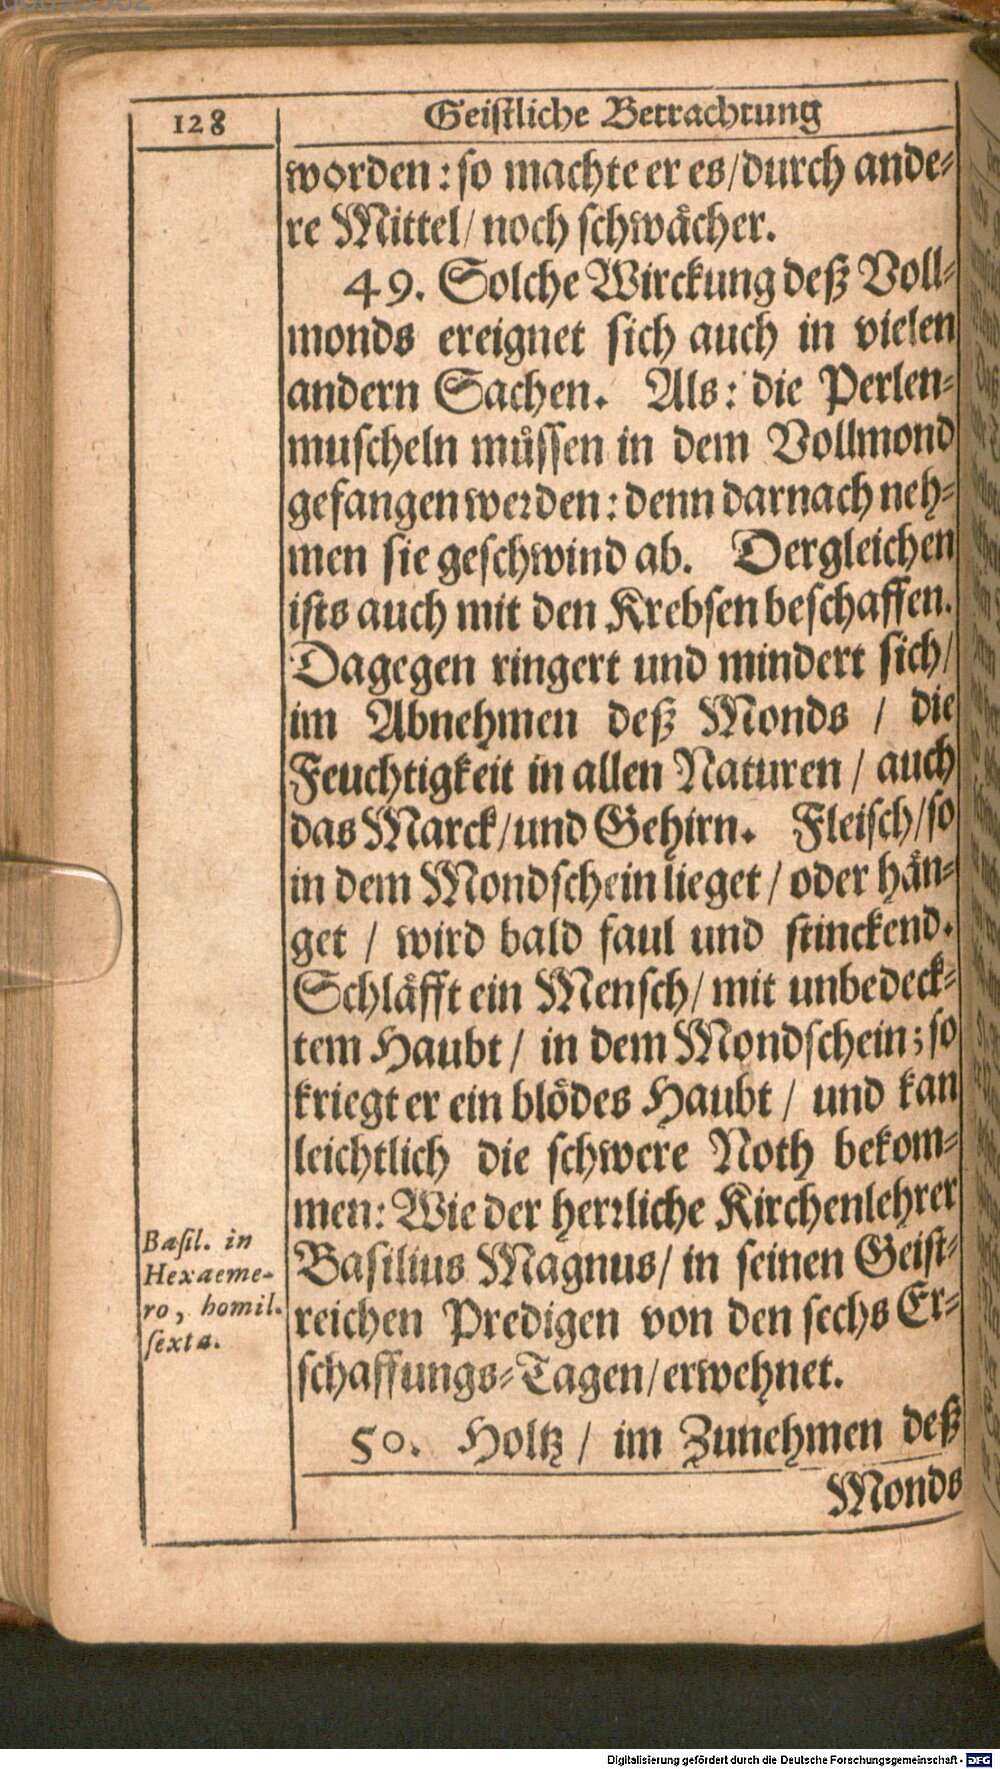 128
Geiſtliche Betrachtung
worden: ſo machte er es/durch ande⸗
re Mittel/ noch ſchwaͤcher.
49. Solche Wirckung deß Voll⸗
monds ereignet ſich auch in vielen
andern Sachen. Als: die Perlen⸗
muſcheln muͤſſen in dem Vollmond
gefangen werden: denn darnach neh⸗
men ſie geſchwind ab. Dergleichen
iſts auch mit den Krebſen beſchaffen.
Dagegen ringert und mindert ſich/
im Abnehmen deß Monds / die
Feuchtigkeit in allen Naturen / auch
das Marck/und Gehirn. Fleiſch/ſo
in dem Mondſchein lieget / oder haͤn⸗
get / wird bald faul und ſtinckend.
Schlaͤfft ein Menſch/ mit unbedeck⸗
tem Haubt / in dem Mondſchein; ſo
kriegt er ein bloͤdes Haubt / und kan
leichtlich die ſchwere Noth bekom⸗
men: Wie der herꝛliche Kirchenlehrer
Baſilius Magnus/ in ſeinen Geiſt⸗
reichen Predigen von den ſechs Er⸗
ſchaffungs⸗Tagen/erwehnet.
Baſil. in
Hexaeme-
ro, homil.
ſexta.
50. Holtz / im Zunehmen deß
Monds
Digitalisierung gefördert durch die Deutsche Forschungsgemeinschaft - DFG